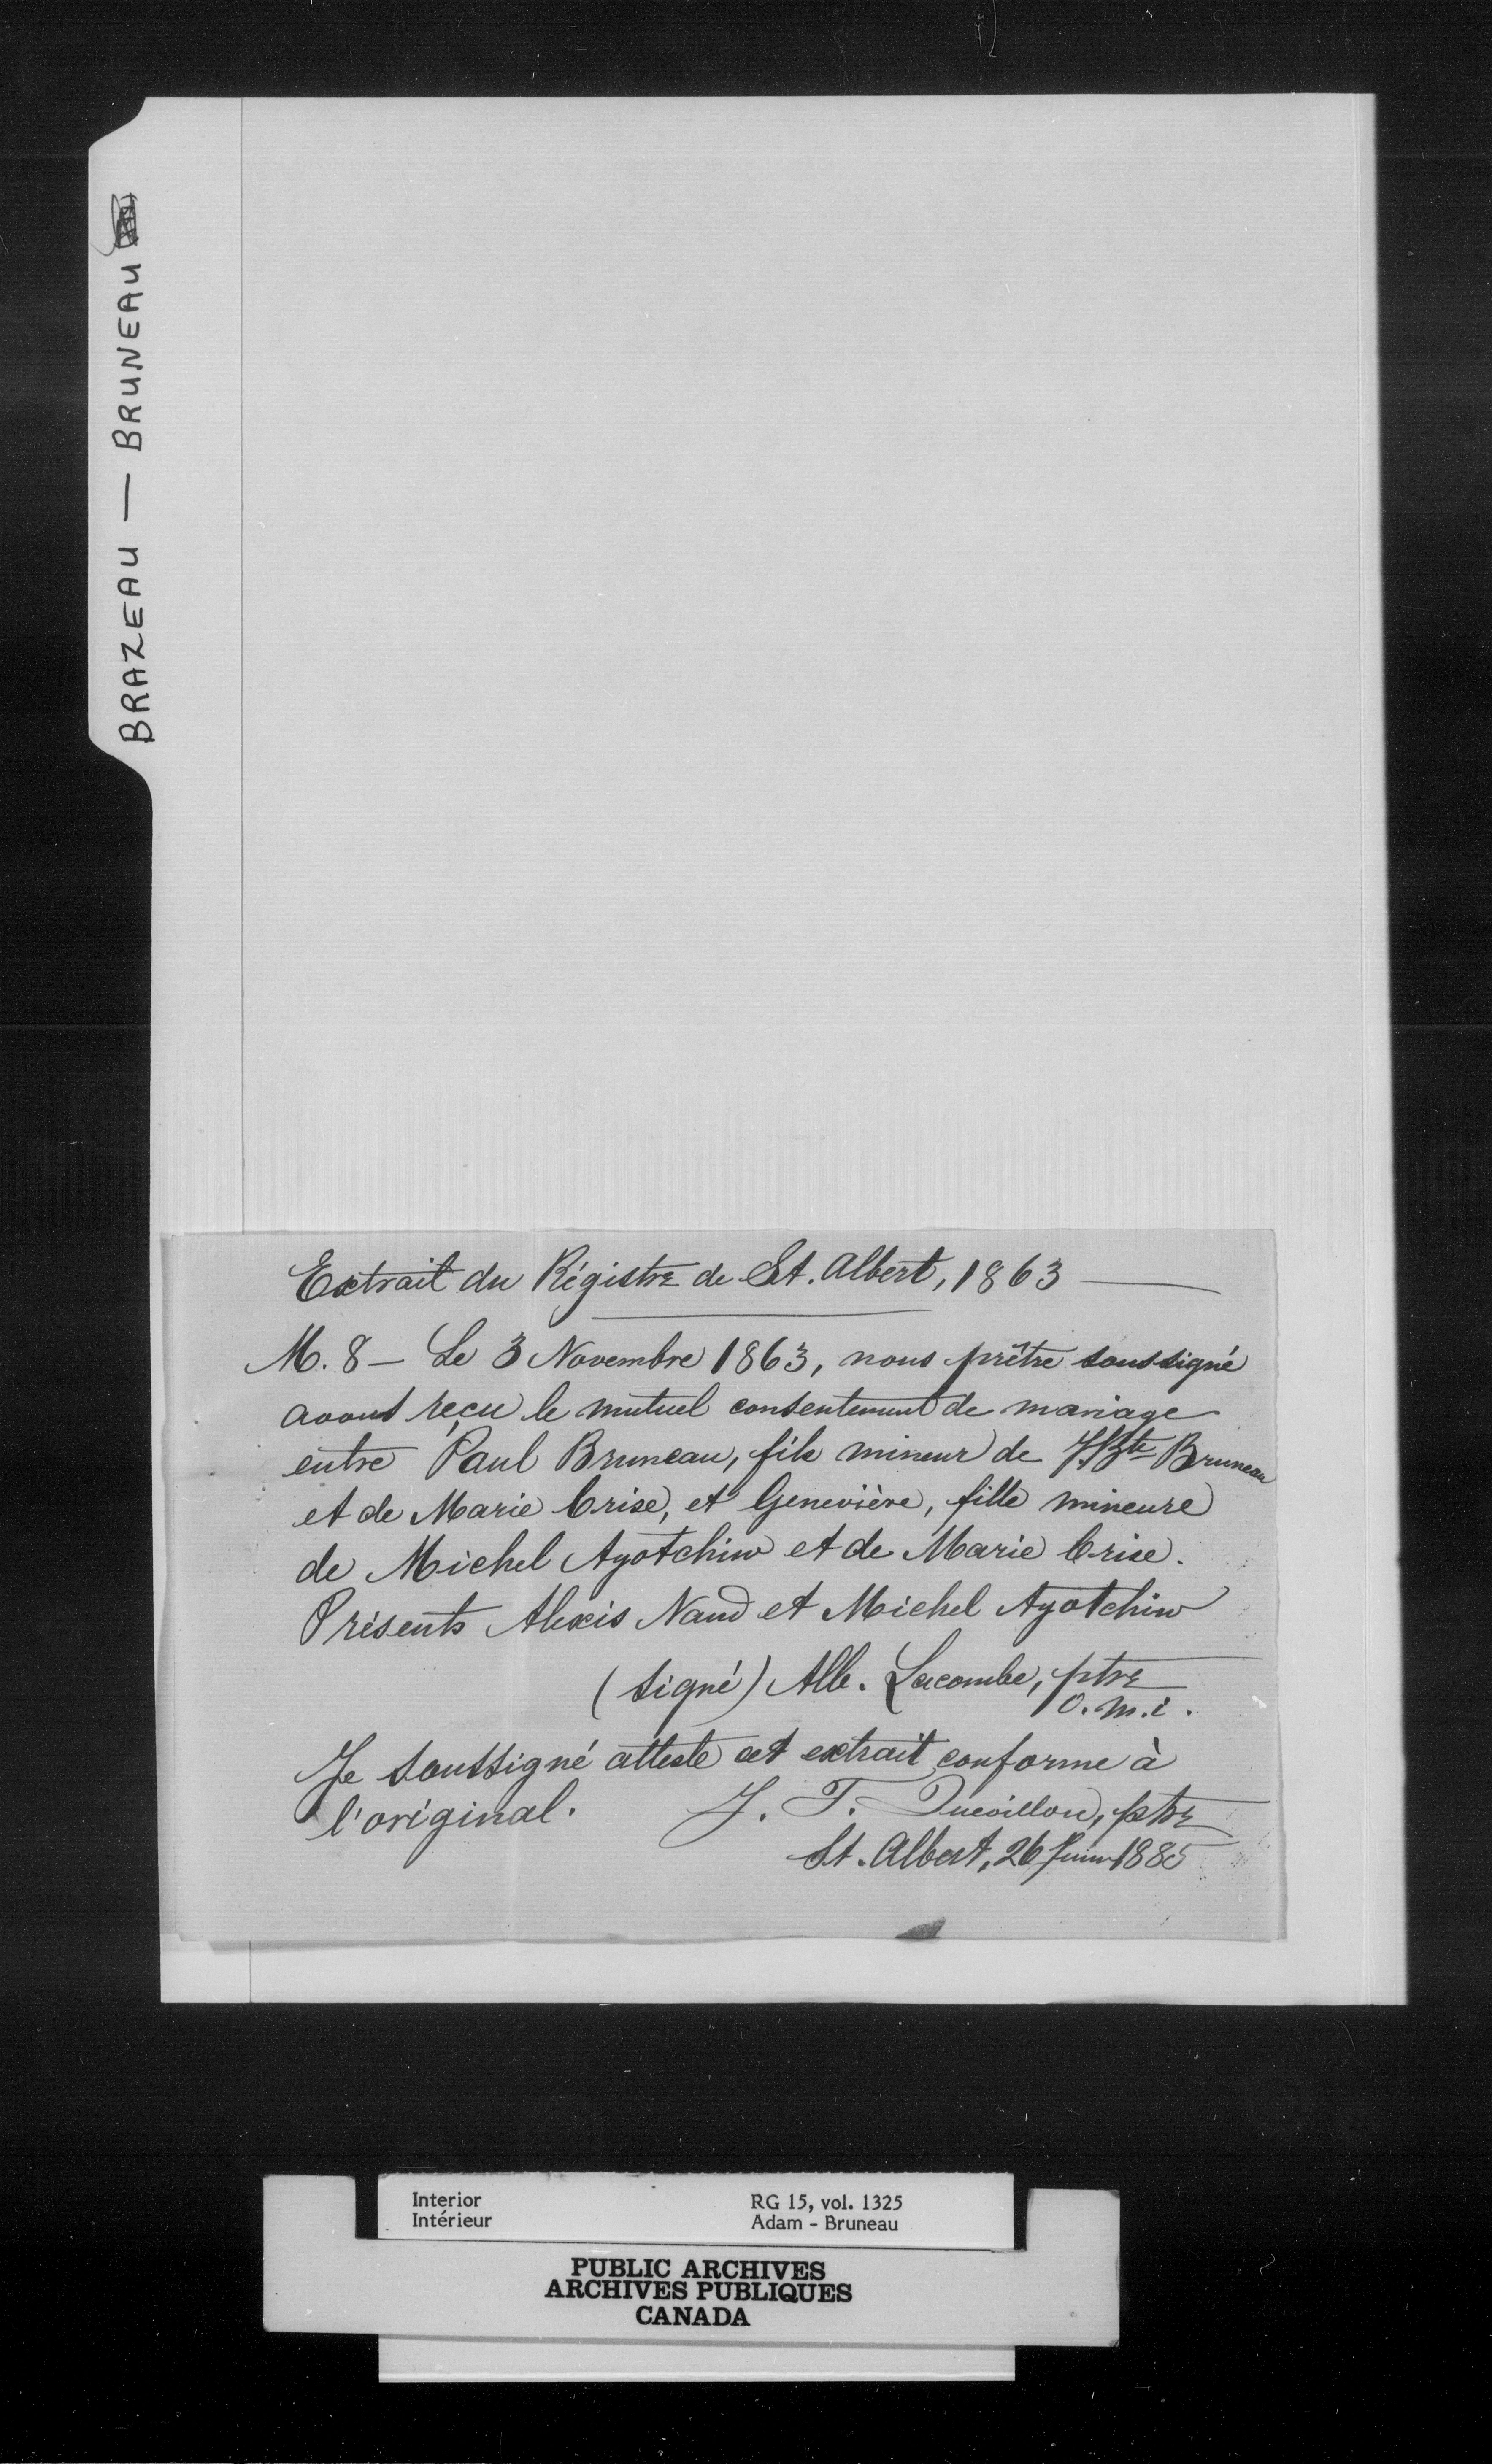 BRAZEAU — BRUNEAU
Extrait du Régistre de St. Albert, 1863 —
M. 8 — Le 3 Novembre 1863, nous prêtre soussigné
avons reçu le mutuel consentement de mariage
entre Paul Bruneau, fils mineur de J. Bte Bruneau
et de Marie Crise, et Geneviève, fille mineure
de Michel Ayotchiw et de Marie Crise.
Présents Alexis Naud et Michel Ayotchiw
(signé) Alb. Lacombe, ptre
O.M.I.
Je soussigné atteste cet extrait conforme à
l'original. J. T. Quévillon, ptre
St. Albert, 26 Juin 1885
Interior RG 15, vol. 1325
Intérieur Adam - Bruneau
PUBLIC ARCHIVES
ARCHIVES PUBLIQUES
CANADA